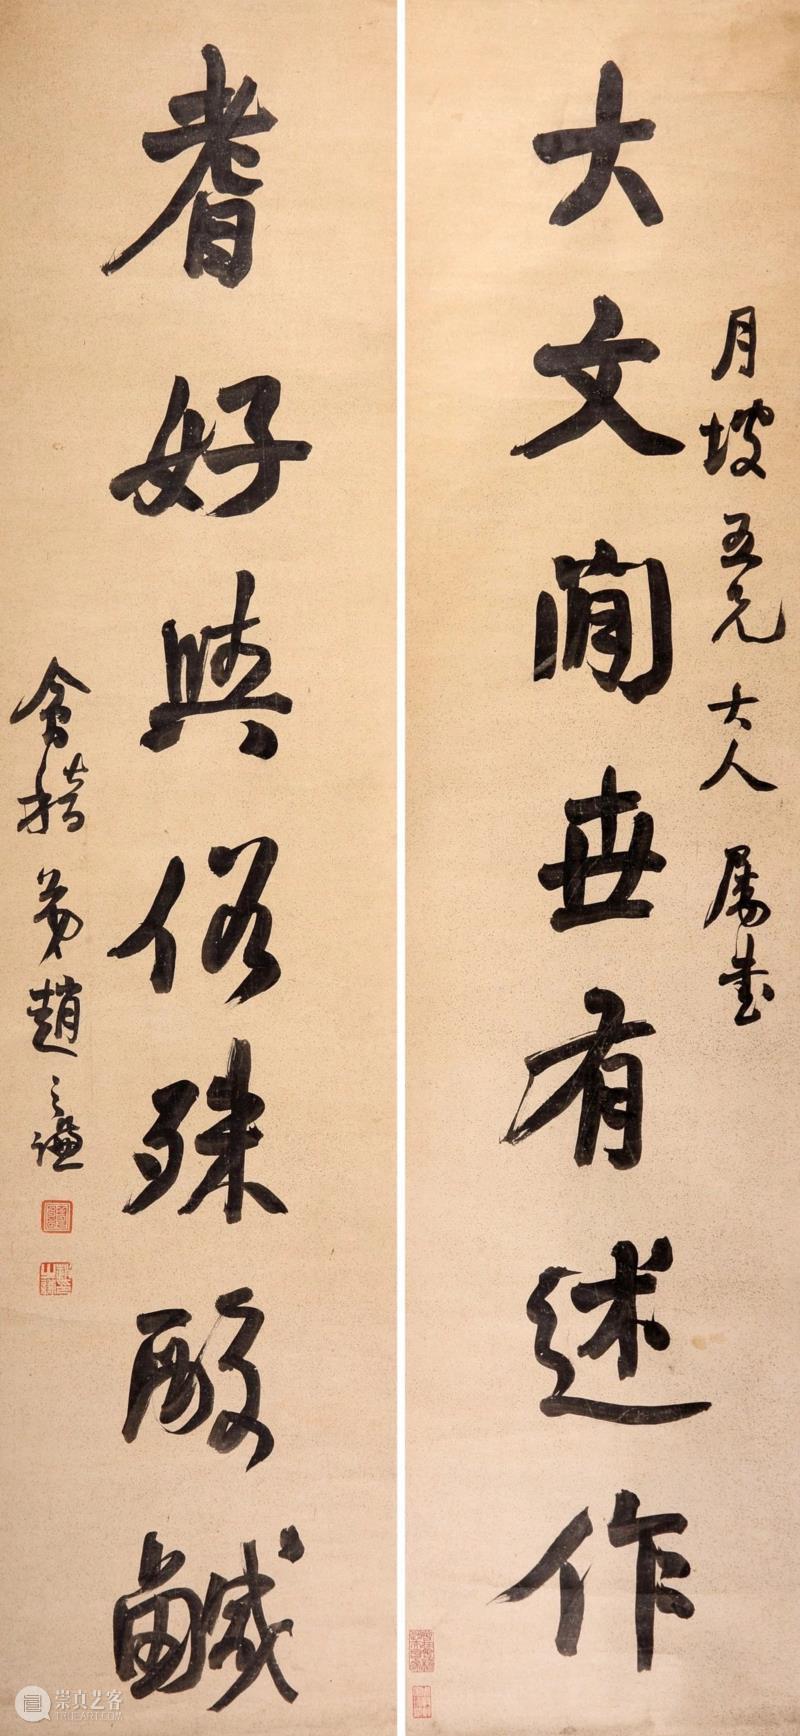 月坡五兄大人屬書
大文閒世有述作
耆好與俗殊酸鹹
會稽弟趙之謙
崇真艺客
TRUEART.COM